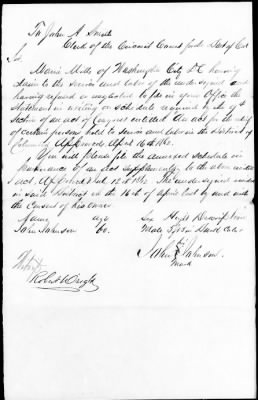 To John A. Smith
Clerk of the Circuit Court for the Dist of Col
Sir
Maria Mills of Washington City D.C. having
claim to the service and labor of the undersigned and
having refused or neglected to file in your Office the
Statement in writing or schedule required by the 9th
Section of an act of Congress entitled An act for the relief
of certain persons held to service and labor in the District of
Columbia Approved April 16th 1862.
You will please file the annexed schedule in
pursuance of an act supplementary to the above entitled
act, Approved July 12th 1862. The undersigned resided
in said District on the 16th of April last by and with
the consent of his owner
Name age Sex Hight Description
John Johnson 60. Male 5 ft Dark Color
John Johnson.
mark
Robert Wright